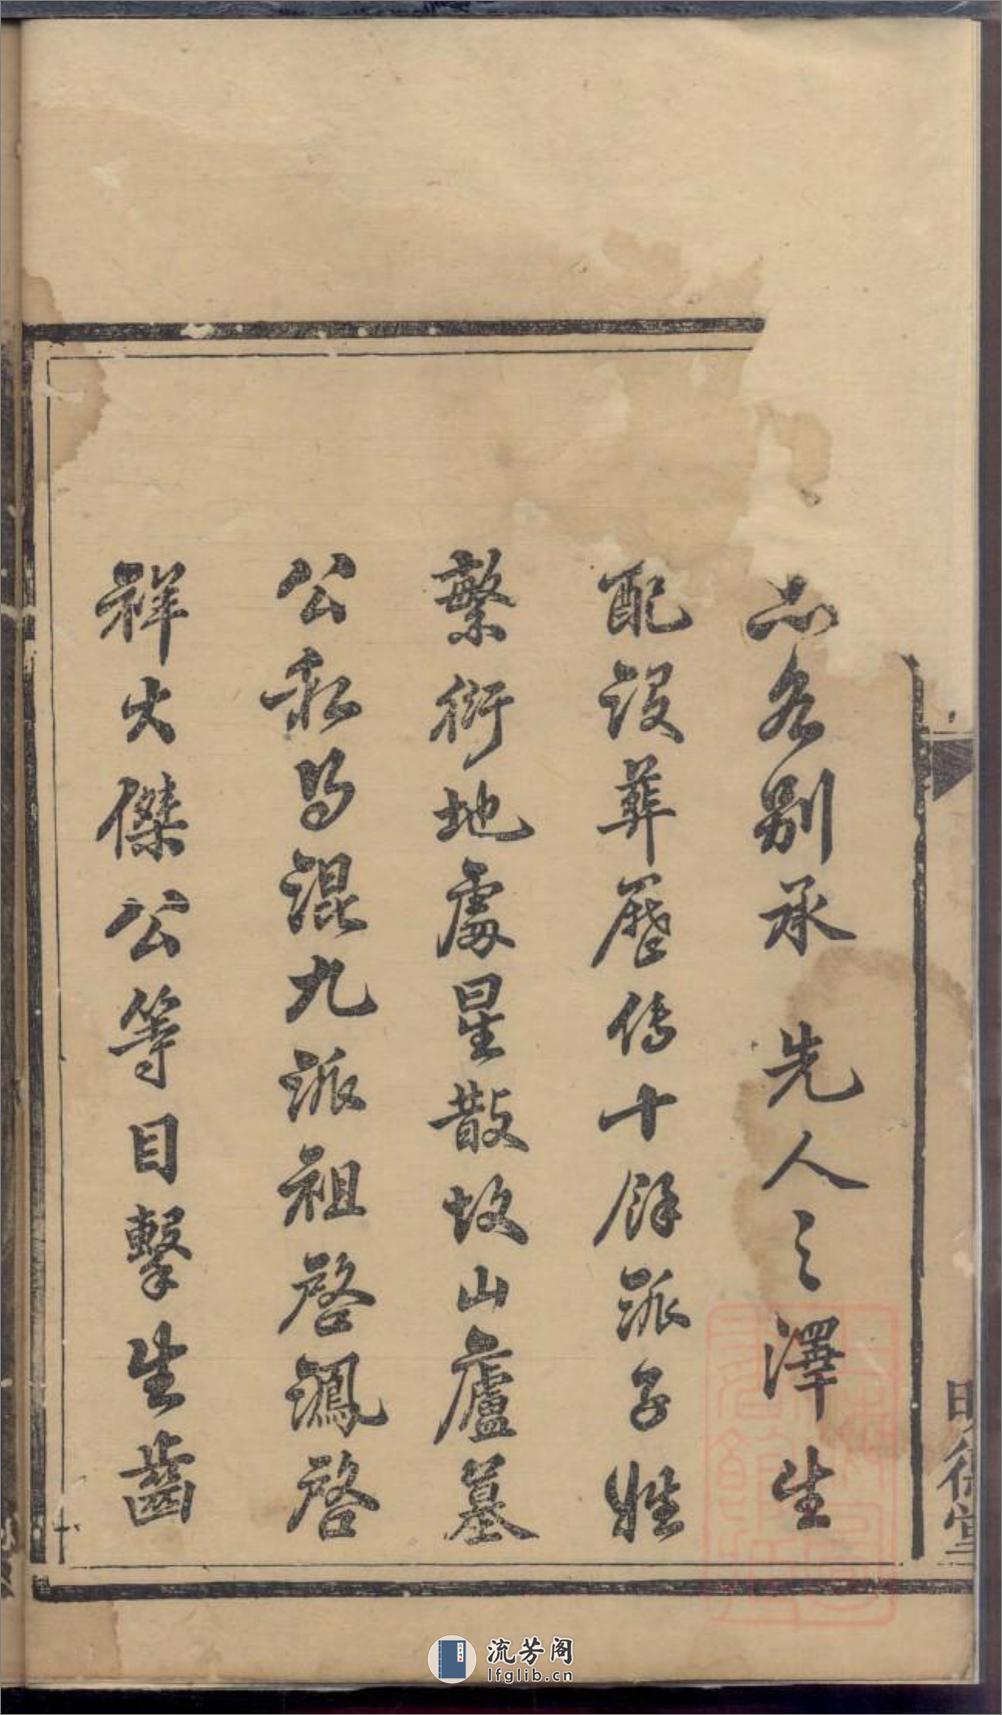 各別承 先人之澤生
配沒葬歷傳十餘派子姓
繁衍地處星散故山廬墓
公私易混九派祖啓鴻啓
祥大傑公等目擊生齒
流芳阁
lfglib.cn